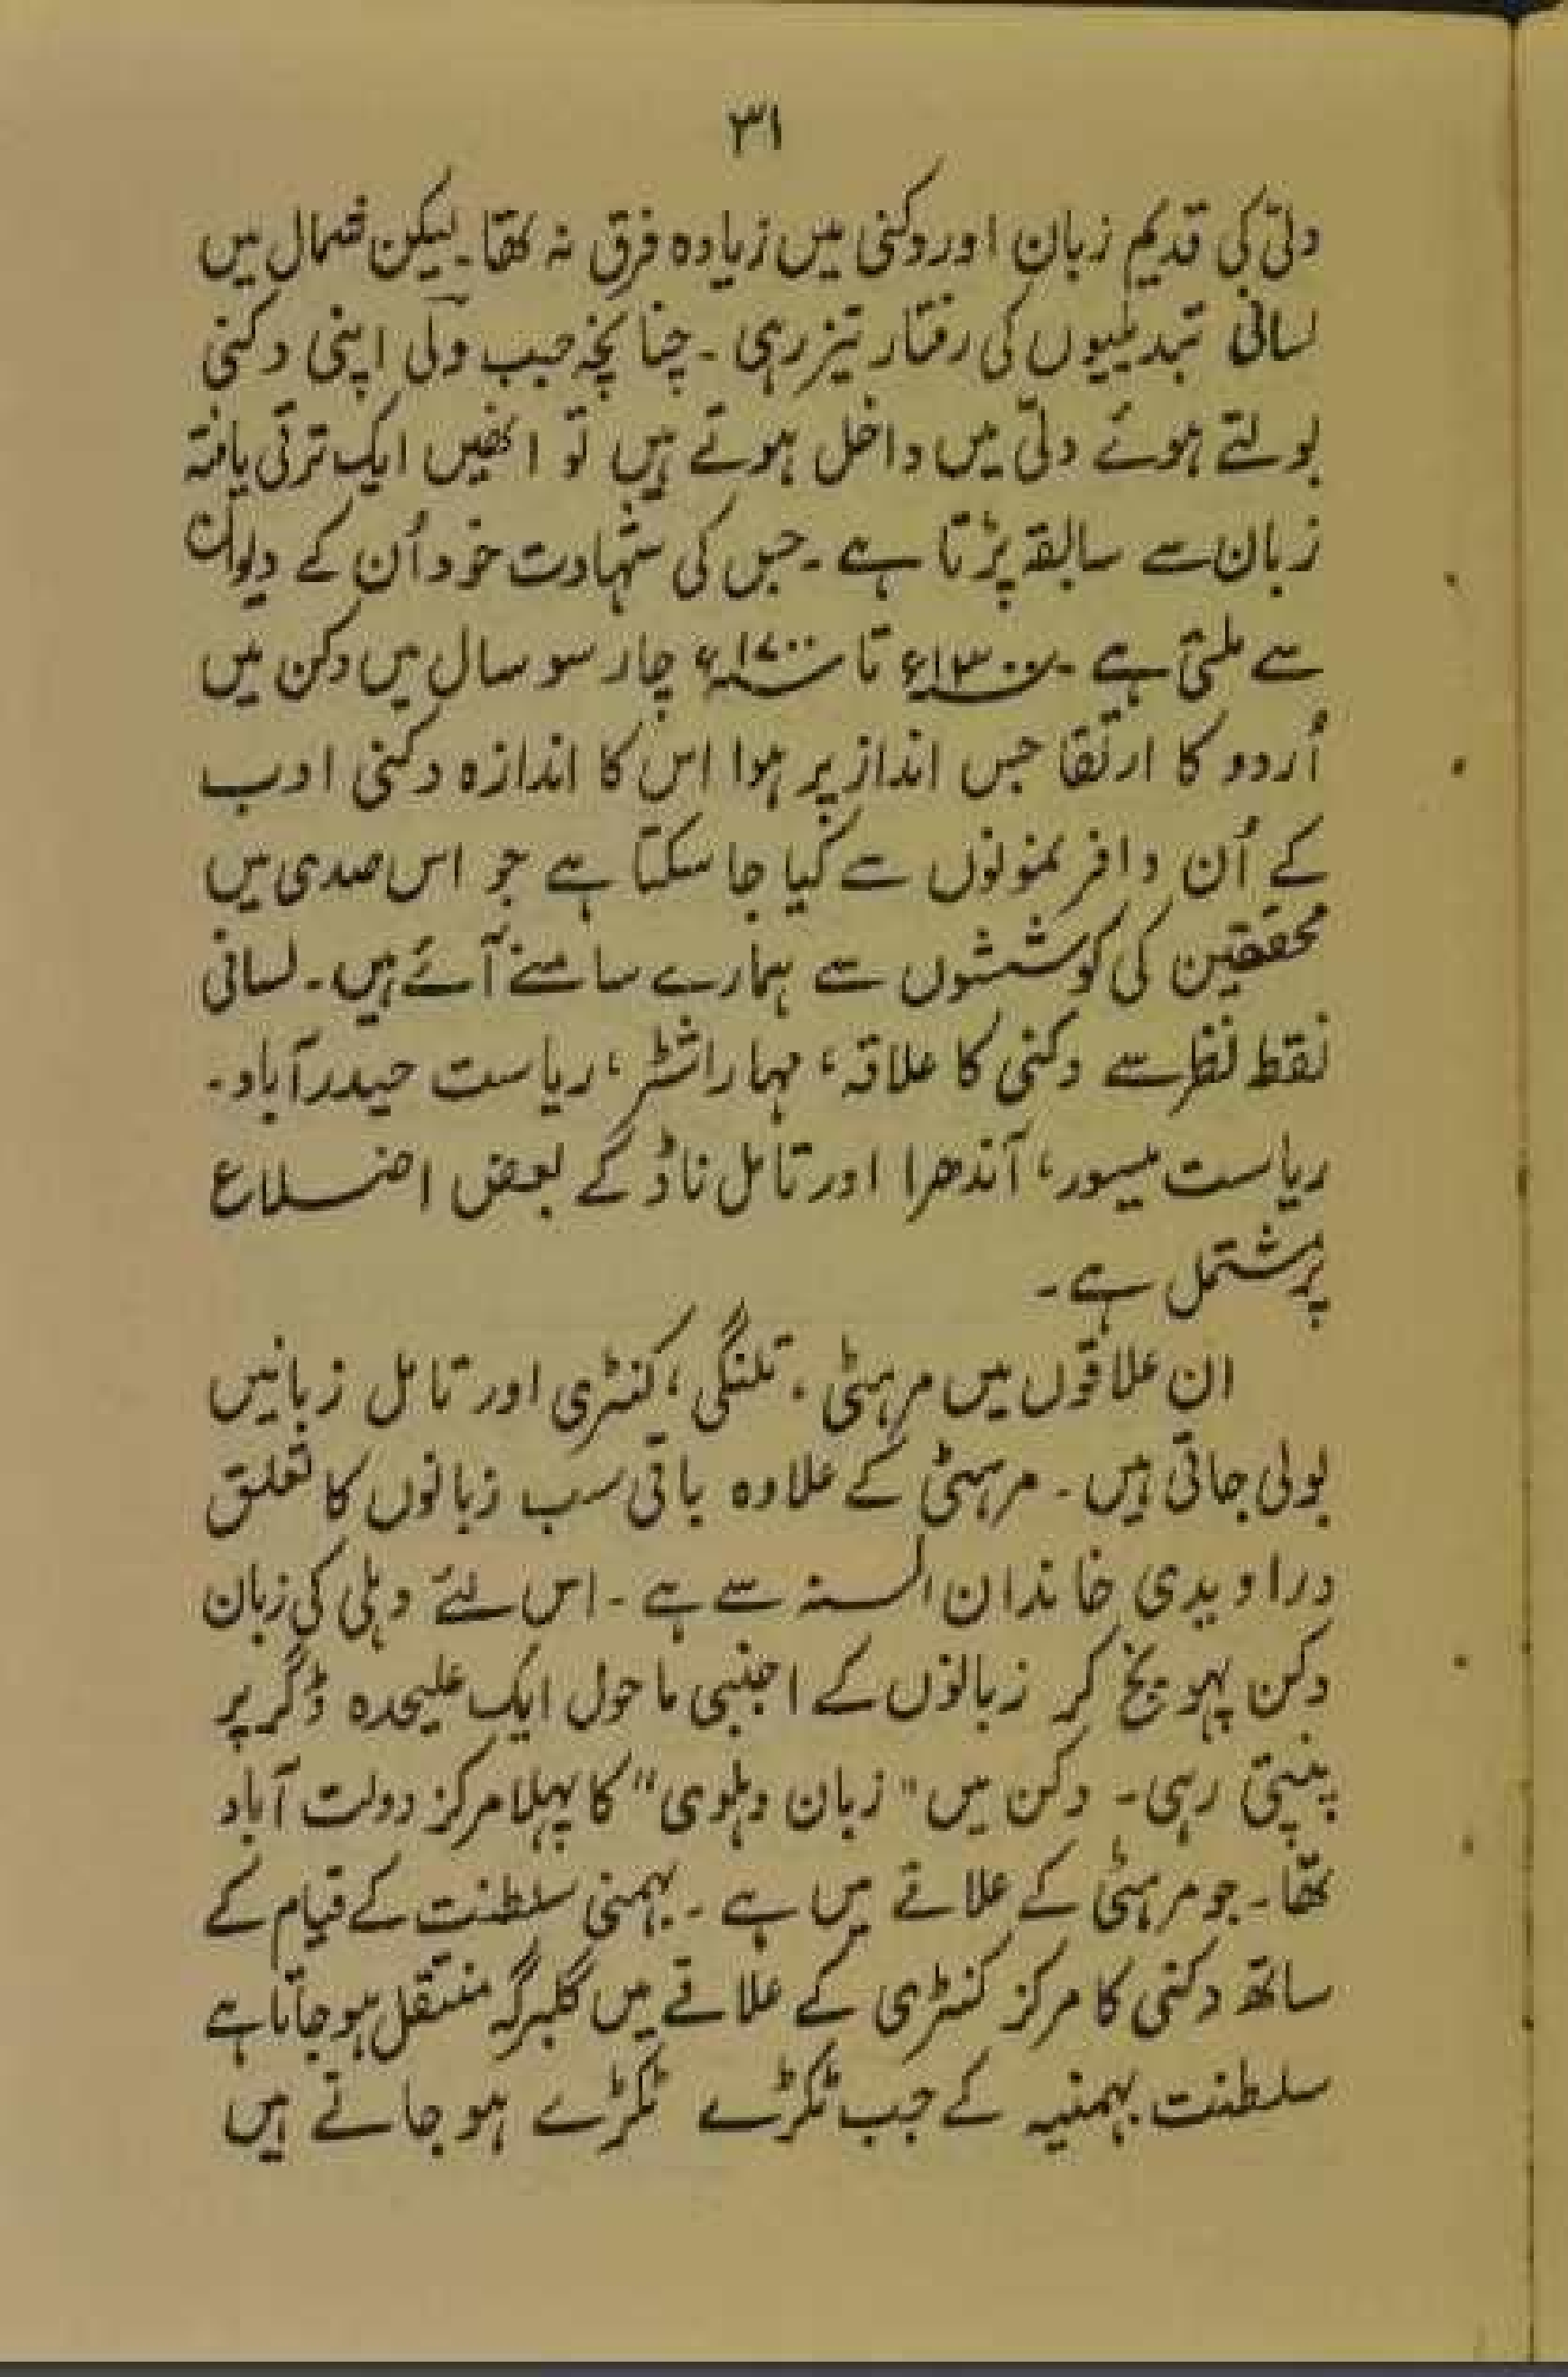 ۳۱
دلّی کی قدیم زبان اور دکنی میں زیادہ فرق نہ تھا۔ لیکن شمال میں
لسانی تبدیلیوں کی رفتار تیز رہی ۔ چنانچہ جب ولی اپنی دکنی
بولتے ہوئے دلّی میں داخل ہوتے ہیں تو انھیں ایک ترقی یافتہ
زبان سے سابقہ پڑتا ہے ۔ جس کی شہادت خود اُن کے دیوان
سے ملتی ہے ۔ ۱۳۰۰ء تا ۱۷۰۰ء چار سو سال میں دکن میں
اُردو کا ارتقا جس انداز پر ہوا اس کا اندازہ دکنی ادب
کے اُن وافر نمونوں سے کیا جا سکتا ہے جو اس صدی میں
محققین کی کوششوں سے ہمارے سامنے آئے ہیں ۔ لسانی
نقطہ نظر سے دکنی کا علاقہ، مہاراشٹر، ریاست حیدرآباد ۔
ریاست میسور، آندھرا اور تامل ناڈ کے بعض اضلاع
پر مشتمل ہے ۔
ان علاقوں میں مرہٹی ، تلنگی، کنڑی اور تامل زبانیں
بولی جاتی ہیں ۔ مرہٹی کے علاوہ باقی سب زبانوں کا تعلق
دراویدی خاندان السنہ سے ہے ۔ اس لئے دہلی کی زبان
دکن پہونچ کر زبانوں کے اجنبی ماحول ایک علیحدہ ڈگر پر
پنپتی رہی ۔ دکن میں "زبان دہلوی" کا پہلا مرکز دولت آباد
تھا ۔ جو مرہٹی کے علاقے میں ہے ۔ بہمنی سلطنت کے قیام کے
ساتھ دکنی کا مرکز کنڑی کے علاقے میں گلبرگہ منتقل ہو جاتا ہے
سلطنت بہمنیہ کے جب ٹکڑے ٹکڑے ہو جاتے ہیں